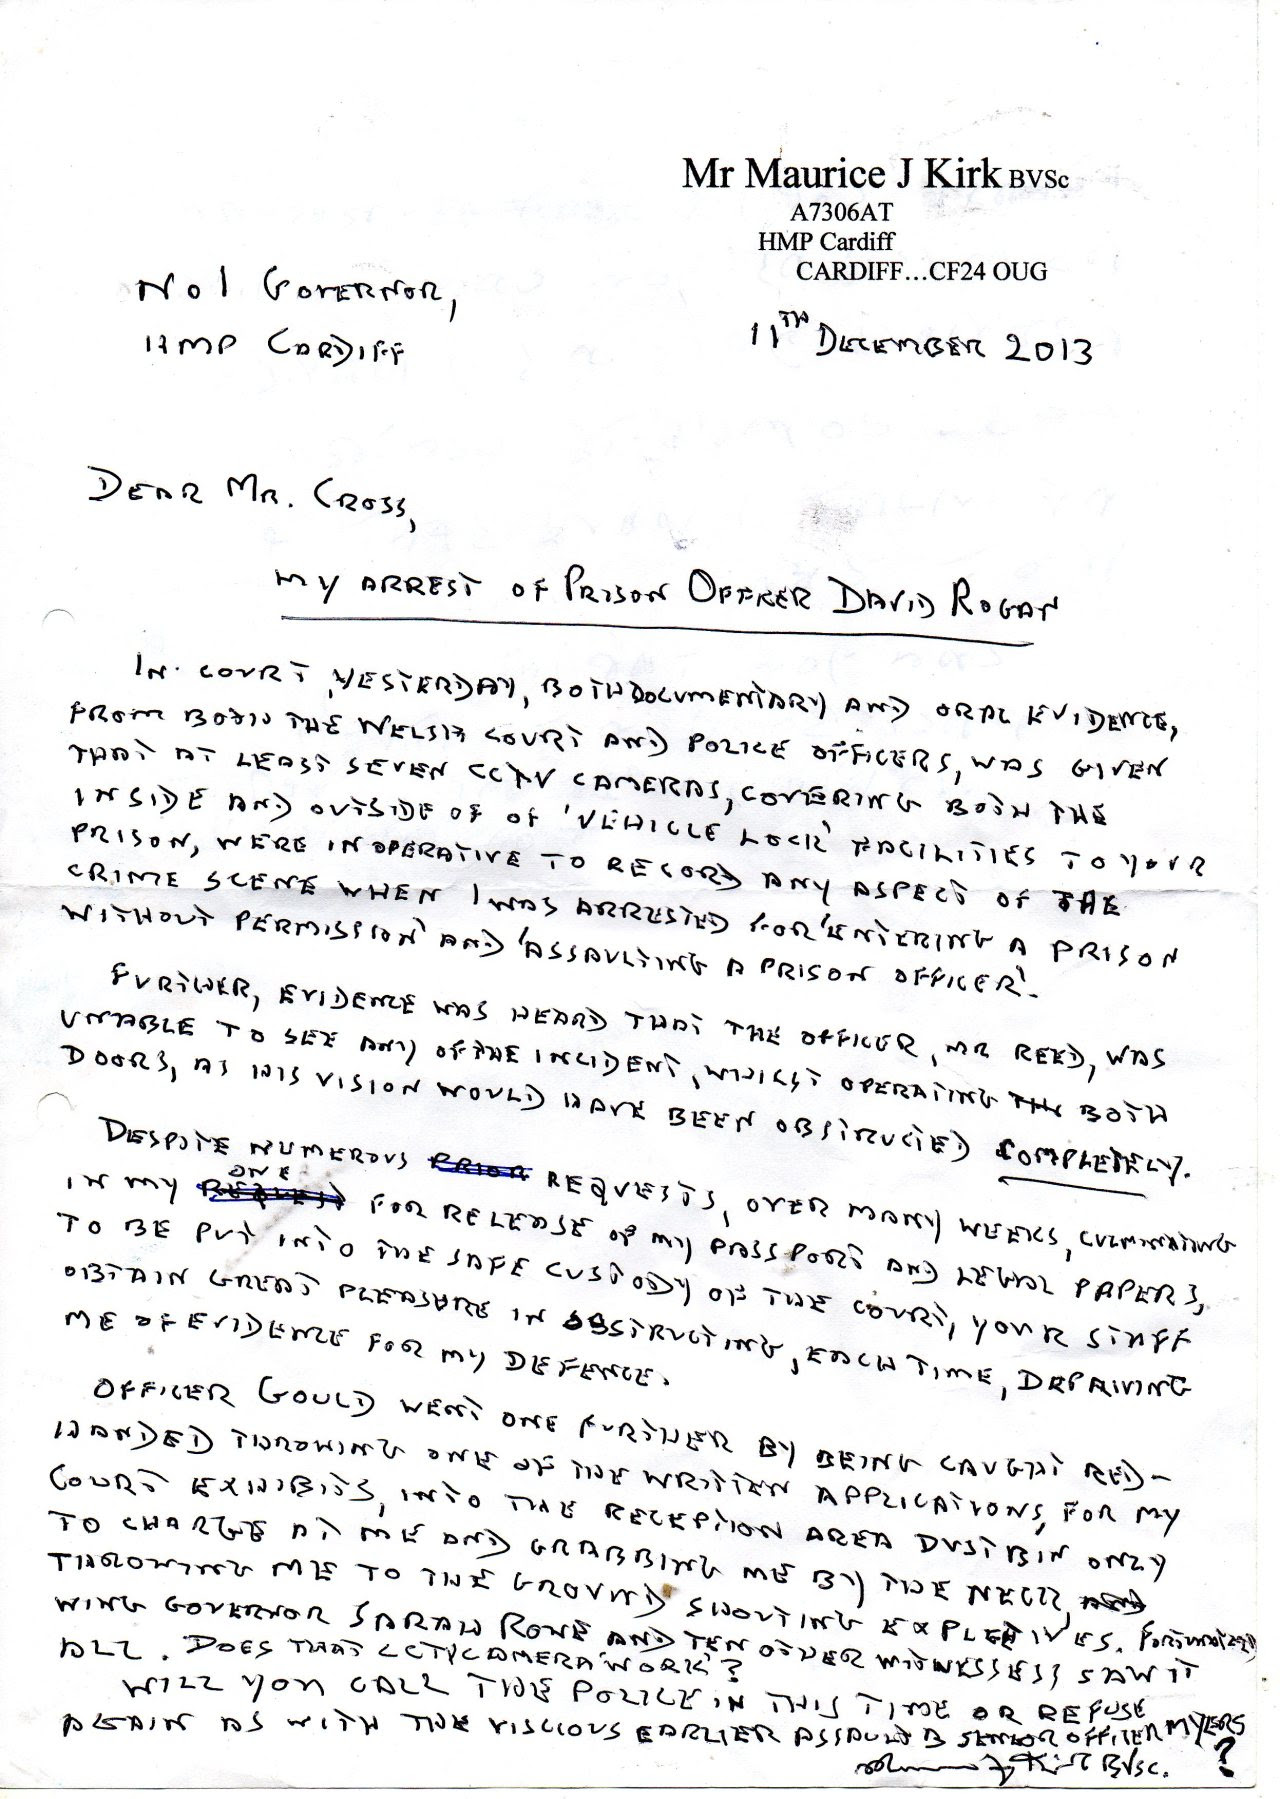 Mr Maurice J Kirk BVSc
A7306AT
HMP Cardiff
CARDIFF...CF24 OUG
No 1 GOVERNOR,
HMP CARDIFF
11TH DECEMBER 2013
DEAR MR. CROSS,
MY ARREST OF PRISON OFFICER DAVID ROGAN
IN COURT, YESTERDAY, BOTH DOCUMENTARY AND ORAL EVIDENCE,
FROM BOTH THE WELSH COURT AND POLICE OFFICERS, WAS GIVEN
THAT AT LEAST SEVEN CCTV CAMERAS, COVERING BOTH THE
INSIDE AND OUTSIDE OF OF 'VEHICLE LOCK' FACILITIES TO YOUR
PRISON, WERE INOPERATIVE TO RECORD ANY ASPECT OF THE
CRIME SCENE WHEN I WAS ARRESTED FOR 'ENTERING A PRISON
WITHOUT PERMISSION' AND 'ASSAULTING A PRISON OFFICER'.
FURTHER, EVIDENCE WAS HEARD THAT THE OFFICER, MR REED, WAS
UNABLE TO SEE ANY OF THE INCIDENT, WHILST OPERATING TH BOTH
DOORS, AS HIS VISION WOULD HAVE BEEN OBSTRUCTED COMPLETELY.
DESPITE NUMEROUS PRIOR REQUESTS, OVER MANY WEEKS, CULMINATING
IN MY REQUEST ONE FOR RELEASE OF MY PASSPORT AND LEGAL PAPERS,
TO BE PUT INTO THE SAFE CUSTODY OF THE COURT, YOUR STAFF
OBTAIN GREAT PLEASURE IN OBSTRUCTING, EACH TIME, DEPRIVING
ME OF EVIDENCE FOR MY DEFENCE.
OFFICER GOULD WENT ONE FURTHER BY BEING CAUGHT RED-
HANDED THROWING ONE OF THE WRITTEN APPLICATIONS, FOR MY
COURT EXHIBITS, INTO THE RECEPTION AREA DUSTBIN ONLY
TO CHARGE AT ME AND GRABBING ME BY THE NECK, AND
THROWING ME TO THE GROUND SHOUTING EXPLETIVES. FORTUNATELY
WING GOVERNOR SARAH ROWE AND TEN OTHER WITNESSES SAW IT
ALL. DOES THAT CCTV CAMERA 'WORK'?
WILL YOU CALL THE POLICE IN THIS TIME OR REFUSE
AGAIN AS WITH THE VISCIOUS EARLIER ASSAULT B SENIOR OFFICER MYERS
?
Maurice J Kirk BVSc.